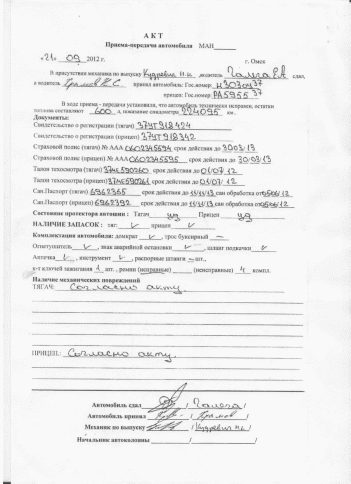 А К Т
Приема-передачи автомобиля МАН
«21» 09 2012 г. г. Омск
В присутствии механика по выпуску Кудревич Н.К. ,водитель Галега Е.А сдал,
а водитель Храмов К.С. принял автомобиль: Гос.номер Н303ОУ 37
прицеп: Гос.номер РА5955 37
В ходе приема - передачи установили, что автомобиль технически исправен, остатки
топлива составляют 600 л, показание спидометра 224095 км.
Документы:
Свидетельство о регистрации (тягач) 37УТ918424
Свидетельство о регистрации (прицеп) 37УТ918342
Страховой полис (тягач) № ААА 0602345594 срок действия до 30.03.13
Страховой полис (прицеп) № ААА 0602345595 срок действия до 30.03.13
Талон техосмотра (тягач) срок действия до 01/07/12
Талон техосмотра (прицеп) срок действия до 01/07/12
Сан.Паспорт (тягач) 6962365 срок действия до сан обработка от
Сан.Паспорт (прицеп) 6962392 срок действия до сан обработка от
Состояние протектора автошин : Тягач уд Прицеп уд
НАЛИЧИЕ ЗАПАСОК : тяг: ✓ прицеп ✓
Комплектация автомобиля: домкрат ✓ , трос буксирный –
Огнетушитель ✓ , знак аварийной остановки ✓ , шланг подкачки ✓
Аптечка ✓ , инструмент ✓ , распорные штанги – шт.,
к-т ключей зажигания 1 шт., ремни (исправные) (неисправные) 4 компл.
Наличие механических повреждений
ТЯГАЧ: Согласно акту.
ПРИЦЕП: Согласно акту.
Автомобиль сдал / Галега /
Автомобиль принял / Храмов /
Механик по выпуску / Кудревич Н.К /
Начальник автоколонны / /